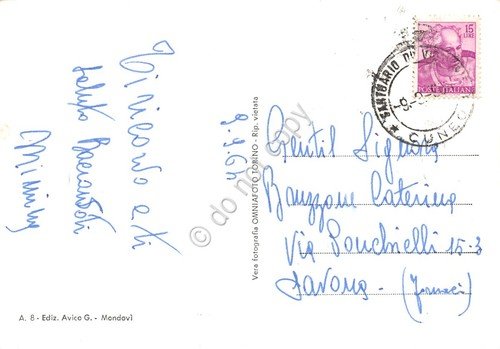 Ti ricordo e ti
saluto
9.9.64
A. 8 - Ediz. Avico G. - Mondovì
Vera fotografia OMNIAFOTO TORINO - Rip. vietata
do not copy
15
LIRE
POSTE ITALIANE
SANTUARIO DI
CUNEO
Gentil Signora
Bruzzone Caterina
Via Ponchielli 15-3
Savona - (Fornaci)